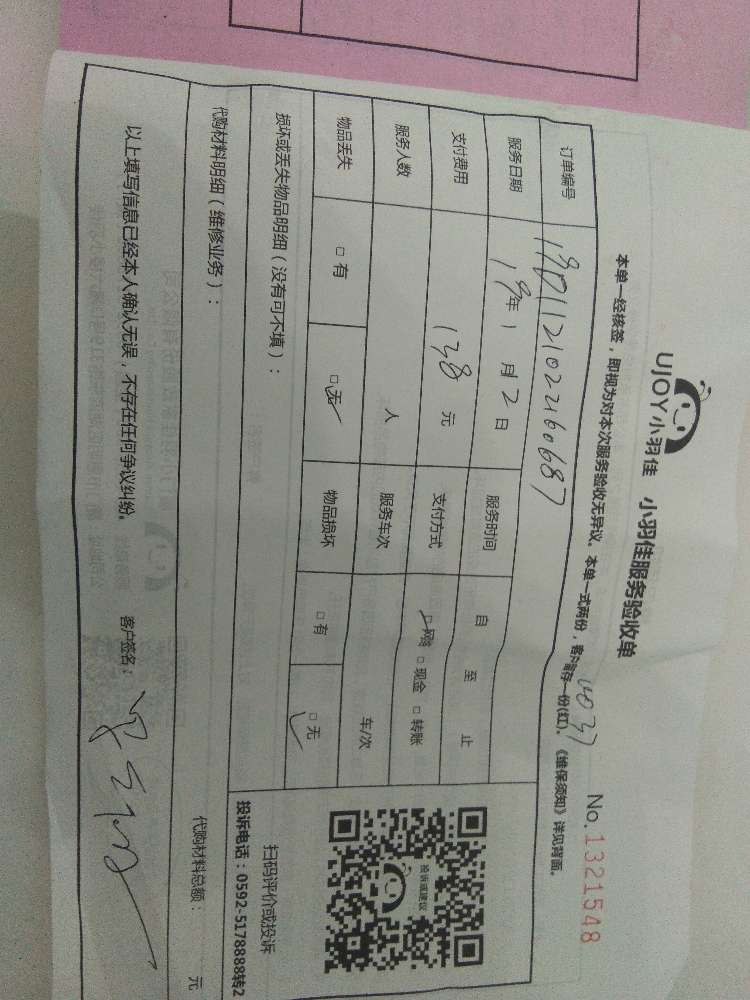 UJOY小羽佳 小羽佳服务验收单
No.1321548
本单一经核签，即视为对本次服务验收无异议。本单一式两份，客户留存一份(红)。《维保须知》详见背面。
4037
订单编号 190112102260687
服务日期 19年 1月12日 服务时间 自 至 止
支付费用 138元 支付方式 □网络 □现金 □转账
服务人数 人 服务车次 车/次
物品丢失 □有 □无 物品损坏 □有 □无
损坏或丢失物品明细（没有可不填）：
代购材料明细（维修业务）： 代购材料总额： 元
以上填写信息已经本人确认无误，不存在任何争议纠纷。 客户签名：
投诉或建议
扫码评价或投诉
投诉电话：0592-5178888转2